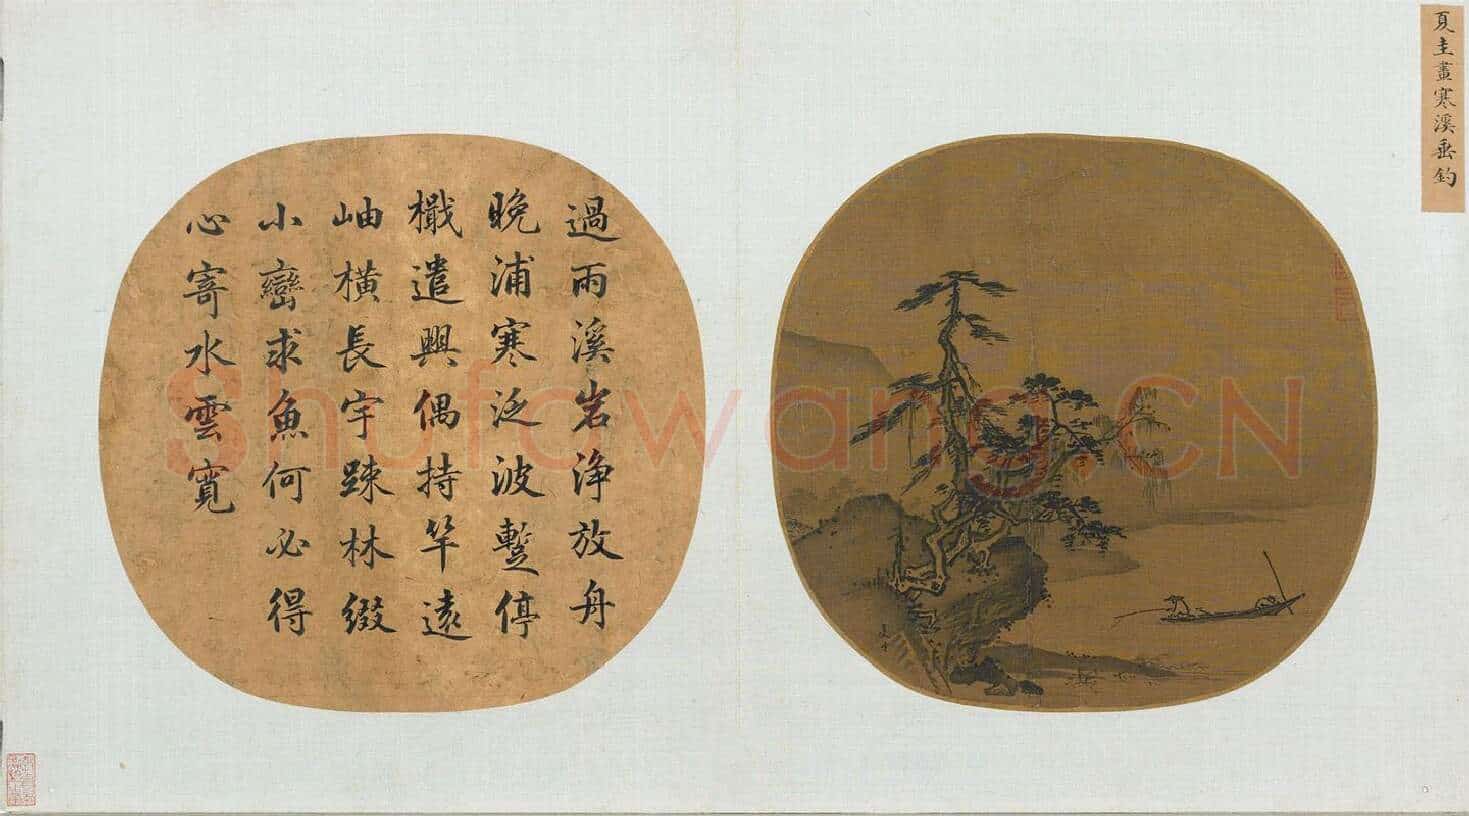 夏圭畫寒溪垂釣
過雨溪岩淨放舟
晚浦寒泛波蹔停
檝遣興偶持竿遠
岫橫長宇踈林綴
小巒求魚何必得
心寄水雲寬
Shufawang.CN